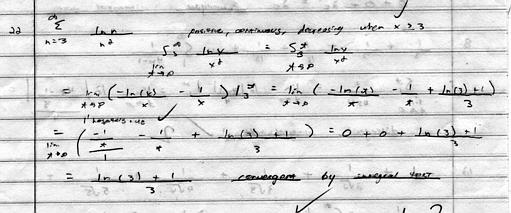 22 ∞ Σ n=3 ln n / n² positive, continuous, decreasing when x ≥ 3
∫₃^∞ ln x / x² = lim t→∞ ∫₃^t ln x / x²
= lim t→∞ (-ln(x) / x - 1 / x) |₃^t = lim t→∞ (-ln(t) / t - 1 / t + ln(3) + 1 / 3)
l'hospital's rule
= lim t→∞ (-1 / t / 1 - 1 / t + ln(3) + 1 / 3) = 0 + 0 + ln(3) + 1 / 3
= ln(3) + 1 / 3 convergent by integral test